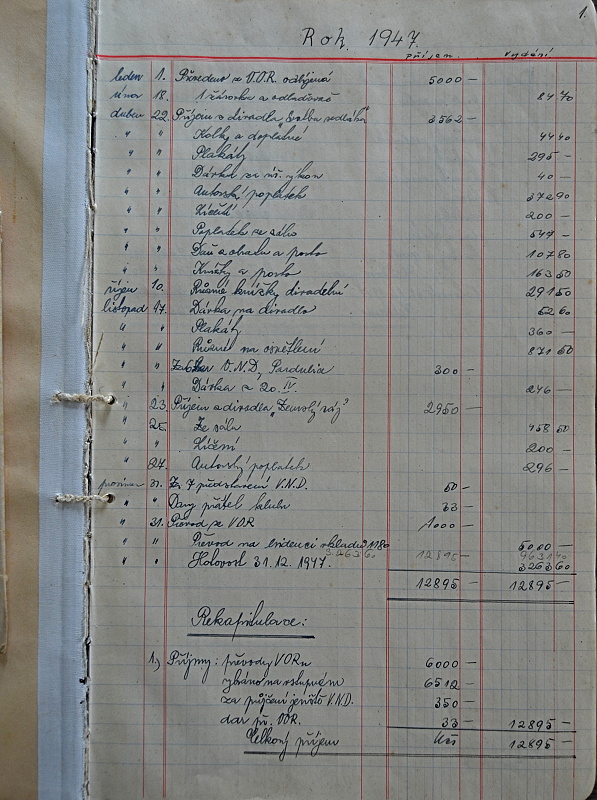 1.
Rok 1947.
příjem vydání
leden 1. Převedeno z V.O.R. odbyjená 5000 —
únor 18. 1 žárovka a odlaďovač 84 70
duben 22. Příjem z divadla „Svatba sedláka" 3562 —
" " Kolky a doplatné 44 40
" " Plakáty 295 —
" " Dávka za úř. výkon 40 —
" " Autorský poplatek 372 90
" " Líčení 200 —
" " Poplatek ze sálu 547 —
" " Daň z obratu a porto 107 80
" " Knížky a porto 163 50
říjen 10. Různé knížky divadelní 291 50
listopad 17. Dávka na divadlo 62 60
" " Plakáty 360 —
" " Různé na osvětlení 871 50
" " V.N.D. Pardubice 300 —
" " Dávka z 20. IV. 246 —
" 23. Příjem z divadla „Zemský ráj" 2950 —
" 25. Ze sálu 458 50
" " Líčení 200 —
" 27. Autorský poplatek 296 —
prosinec 31. Za 7 představení V.N.D. 50 —
" " Dary přátel klubu 33 —
" 31. Převod ze VOR 1000 —
" " Převod na evidenci vkladu 1780 5000 —
" " Hotovost 31. 12. 1947. 3263 60 12895 — 9631 40
3263 60
12895 — 12895 —
Rekapitulace:
1.) Příjmy: převody VORu 6000 —
vybráno na vstupném 6512 —
za půjčení jeviště V.N.D. 350 —
dar př. VOR. 33 — 12895 —
Celkový příjem Kčs 12895 —